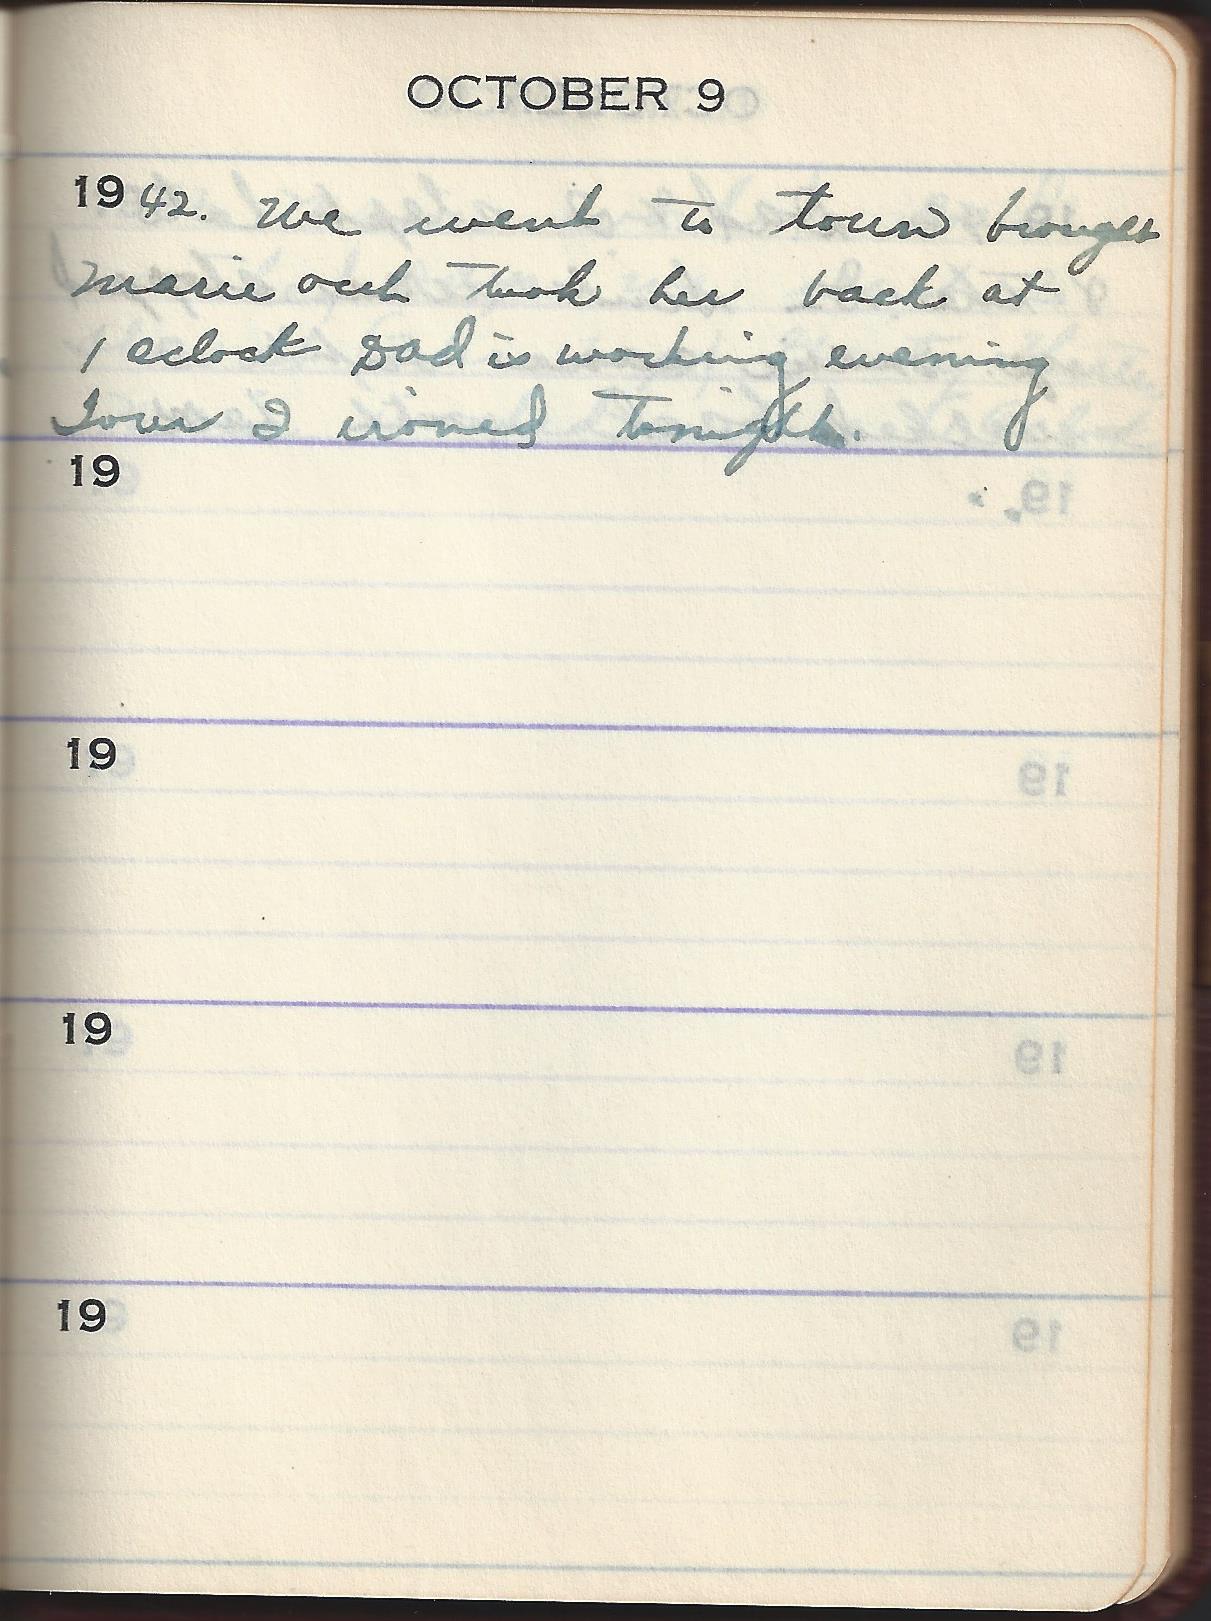 OCTOBER 9
1942. We went to town brought
Marie out took her back at
1 oclock Dad is working evening
Tour I ironed tonight.
19
19
19
19